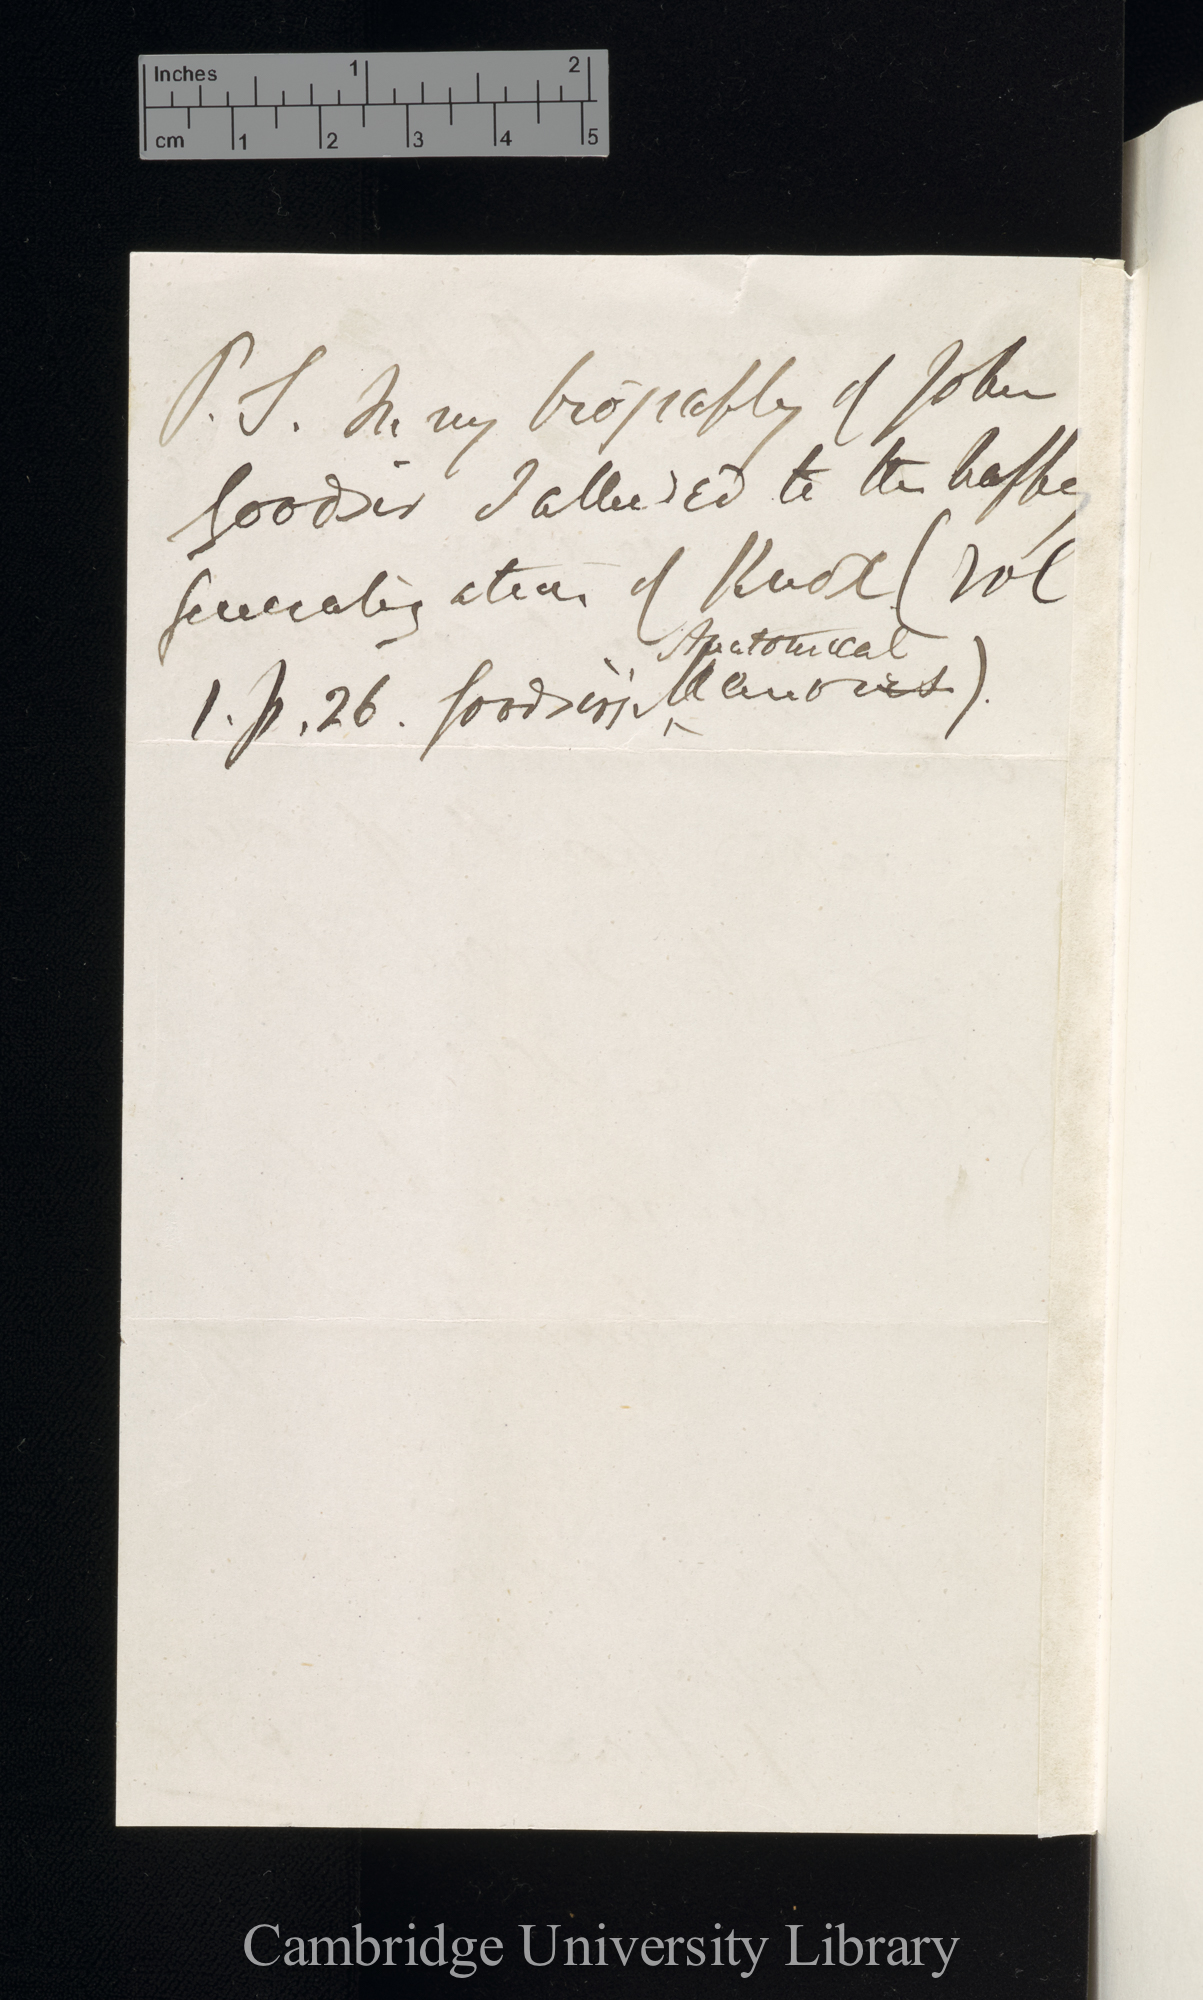 Inches 1 2
cm 1 2 3 4 5
P.S. In my biography of John
Goodsir I alluded to the happy
generalization of Knox (vol
Anatomical
1. p. 26. Goodsir's Memoirs).
Cambridge University Library